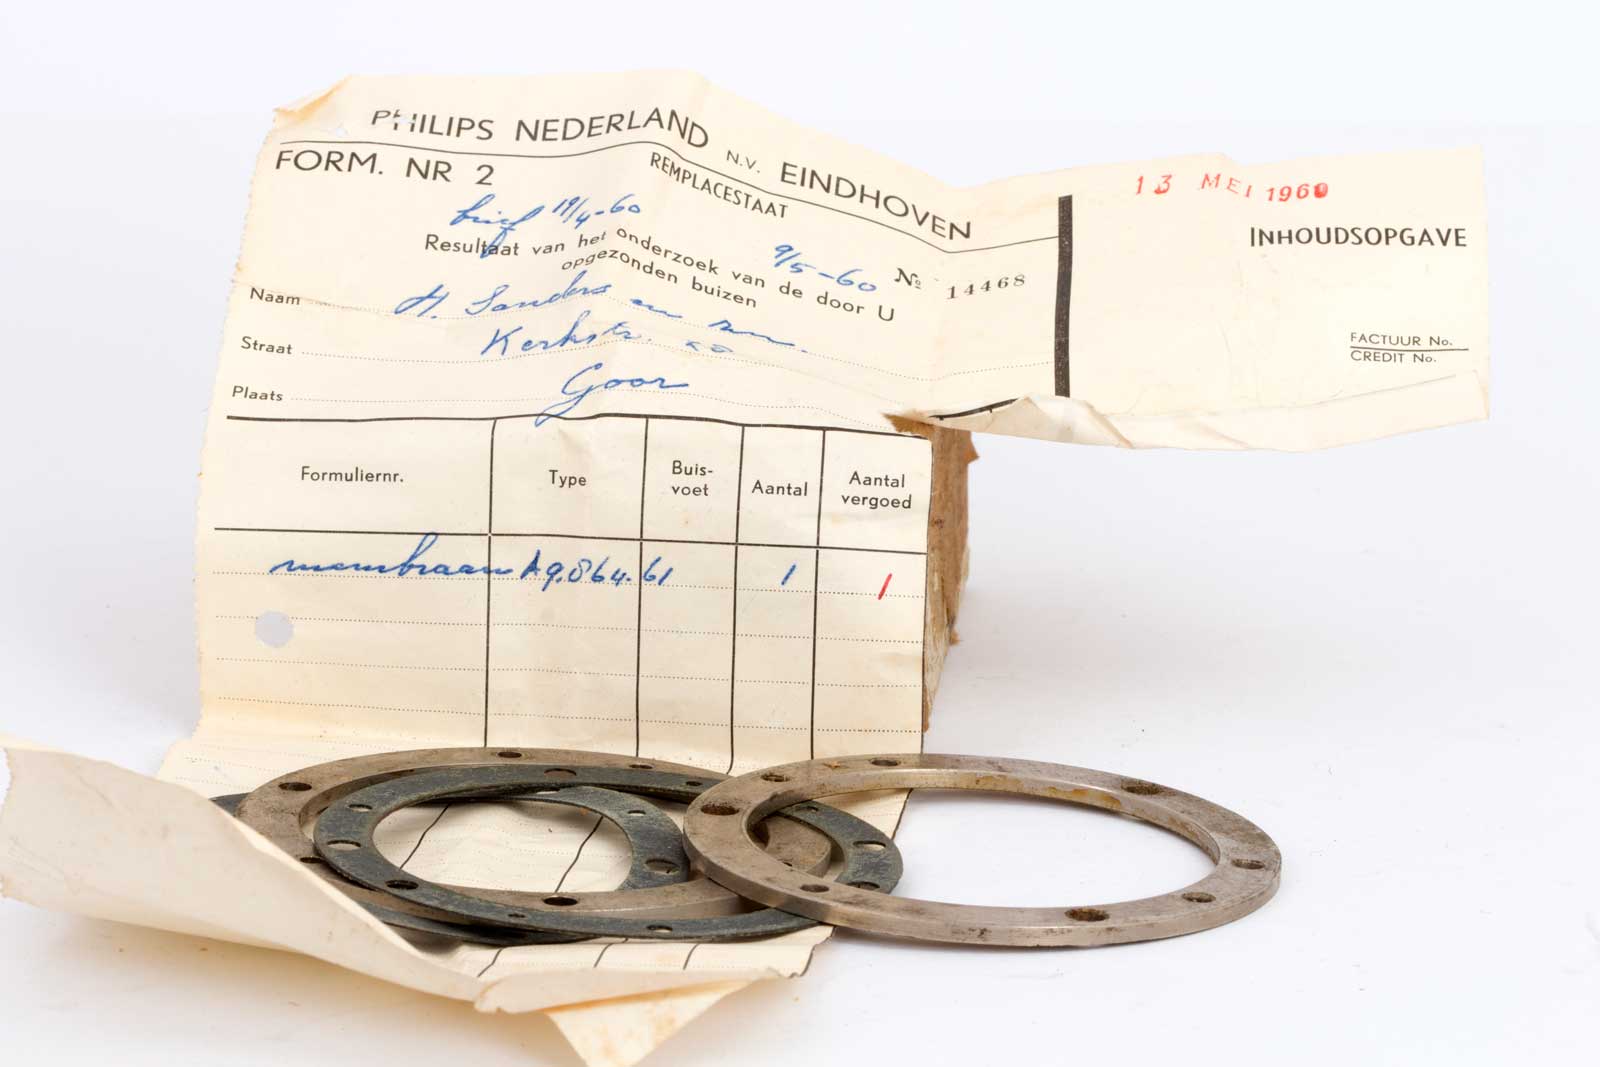 PHILIPS NEDERLAND N.V. EINDHOVEN
FORM. NR 2
REMPLACESTAAT
13 MEI 1960
INHOUDSOPGAVE
brief 19/4-60
9/5-60
Resultaat van het onderzoek van de door U
opgezonden buizen
No 14468
Naam H. Sanders en zn.
Straat Kerkstr.
Plaats Goor
FACTUUR No.
CREDIT No.
Formuliernr. Type Buis-voet Aantal Aantal vergoed
membraan A9.864.61 1 1